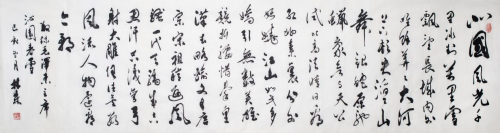 北國風光千
里冰封萬里雪
飄望長城内外
惟餘莽莽大河
上下頓失滔滔山
舞銀蛇原馳
蠟象欲與天公
試比高須晴日
看紅妝素裹分外
妖嬈江山如此多
嬌引無數英雄
競折腰惜秦皇
漢武略輸文采唐
宗宋祖稍遜風
騷一代天驕成吉思
汗只識彎弓
射大雕俱往矣數
風流人物還看
今朝
毛澤東主席
沁園春雪